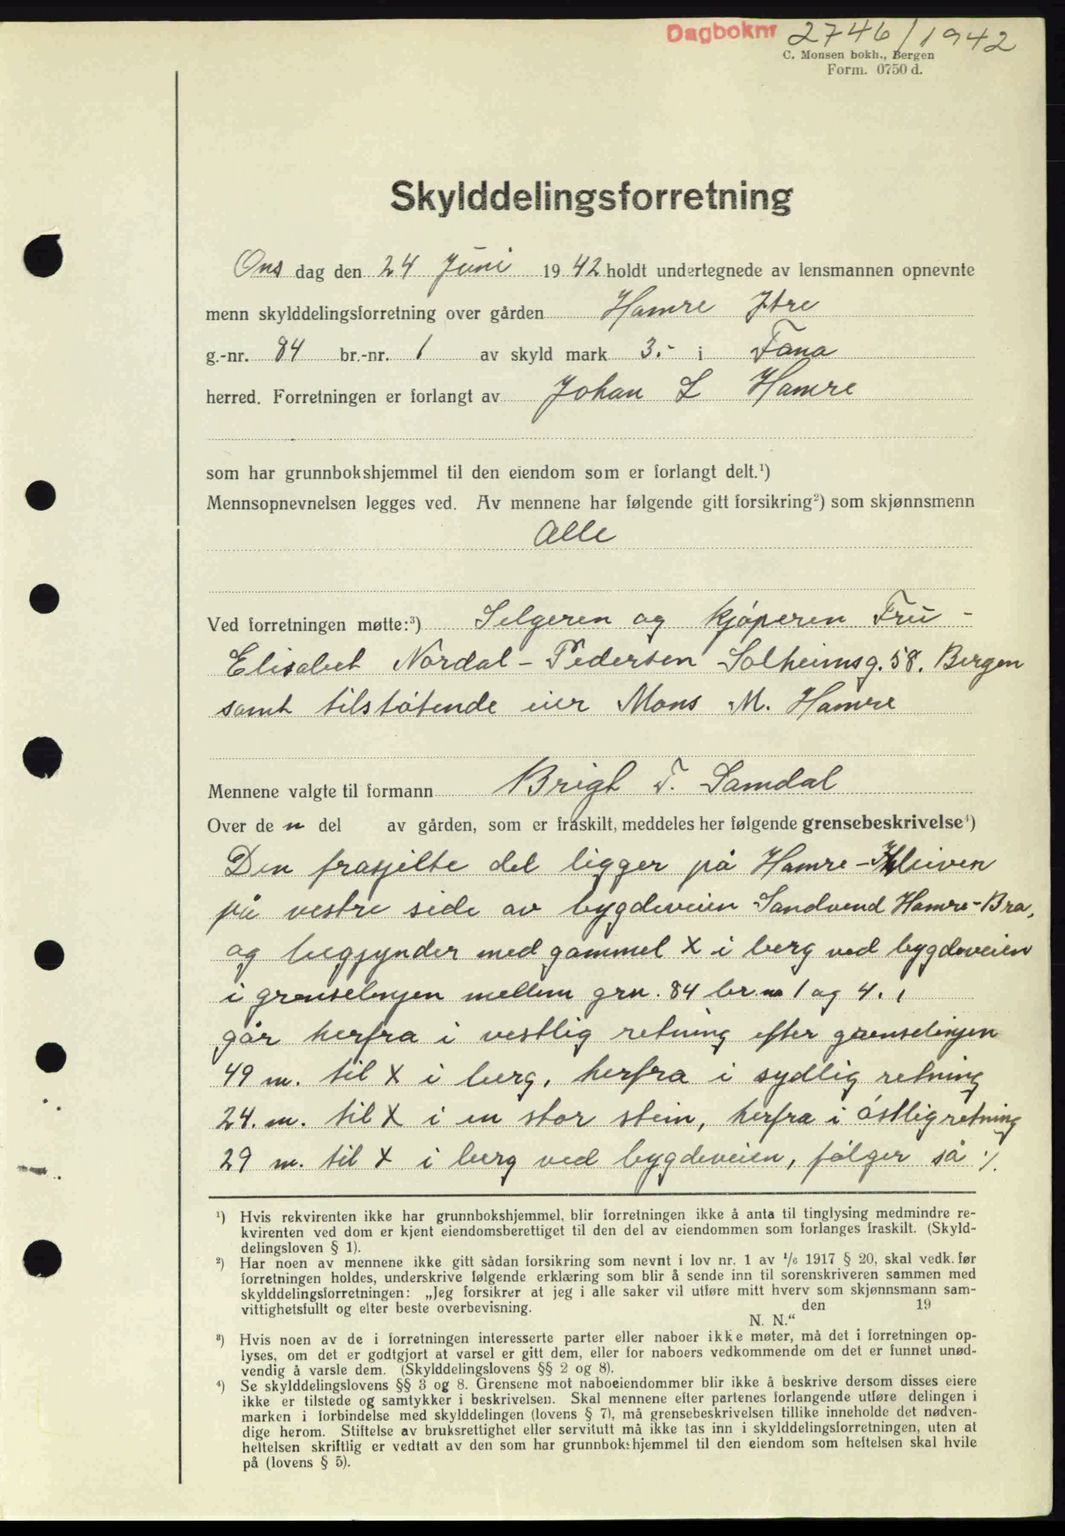 Dagboknr 2746/1942
C. Monsen bokh., Bergen
Form. 0750 d.
Skylddelingsforretning
Onsdag den 24 Juni 1942 holdt undertegnede av lensmannen opnevnte
menn skylddelingsforretning over gården Hamre Ytre
g.-nr. 84 br.-nr. 1 av skyld mark 3.- i Fana
herred. Forretningen er forlangt av Johan L Hamre
som har grunnbokshjemmel til den eiendom som er forlangt delt.¹)
Mennsopnevnelsen legges ved. Av mennene har følgende gitt forsikring²) som skjønnsmenn
Alle
Ved forretningen møtte:³) Selgeren og kjøperen Fru
Elisabet Nordal-Pedersen Solheimsg. 58. Bergen
samt tilstøtende eier Mons M. Hamre
Mennene valgte til formann Brigt T. Samdal
Over den del av gården, som er fraskilt, meddeles her følgende grensebeskrivelse⁴)
Den frasjilte del ligger på Hamre-Kleiven
på vestre side av bygdeveien Sandvend Hamre-Bra,
og begynder med gammel X i berg ved bygdeveien
i grenselinjen mellem grn. 84 br. no 1 og 4.,
går herfra i vestlig retning efter grenselinjen
49 m. til X i berg, herfra i sydlig retning
24. m. til X i en stor stein, herfra i østlig retning
29 m. til X i berg ved bygdeveien, følger så ·/.
¹) Hvis rekvirenten ikke har grunnbokshjemmel, blir forretningen ikke å anta til tinglysing medmindre re-
kvirenten ved dom er kjent eiendomsberettiget til den del av eiendommen som forlanges fraskilt. (Skyld-
delingsloven § 1).
²) Har noen av mennene ikke gitt sådan forsikring som nevnt i lov nr. 1 av 1/6 1917 § 20, skal vedk. før
forretningen holdes, underskrive følgende erklæring som blir å sende inn til sorenskriveren sammen med
skylddelingsforretningen: „Jeg forsikrer at jeg i alle saker vil utføre mitt hverv som skjønnsmann sam-
vittighetsfullt og efter beste overbevisning. den 19
N. N.“
³) Hvis noen av de i forretningen interesserte parter eller naboer ikke møter, må det i forretningen op-
lyses, om det er godtgjort at varsel er gitt dem, eller for naboers vedkommende om det er funnet unød-
vendig å varsle dem. (Skylddelingslovens §§ 2 og 8).
⁴) Se skylddelingslovens §§ 3 og 8. Grensene mot naboeiendommer blir ikke å beskrive dersom disses eiere
ikke er tilstede og samtykker i beskrivelsen. Skal mennene efter partenes forlangende utføre delingen i
marken i forbindelse med skylddelingen (lovens § 7), må grensebeskrivelsen tillike inneholde det nødven-
dige herom. Stiftelse av bruksrettighet eller servitutt må ikke tas inn i skylddelingsforretningen, uten at
heftelsen skriftlig er vedtatt av den som har grunnbokshjemmel til den eiendom som heftelsen skal hvile
på (lovens § 5).